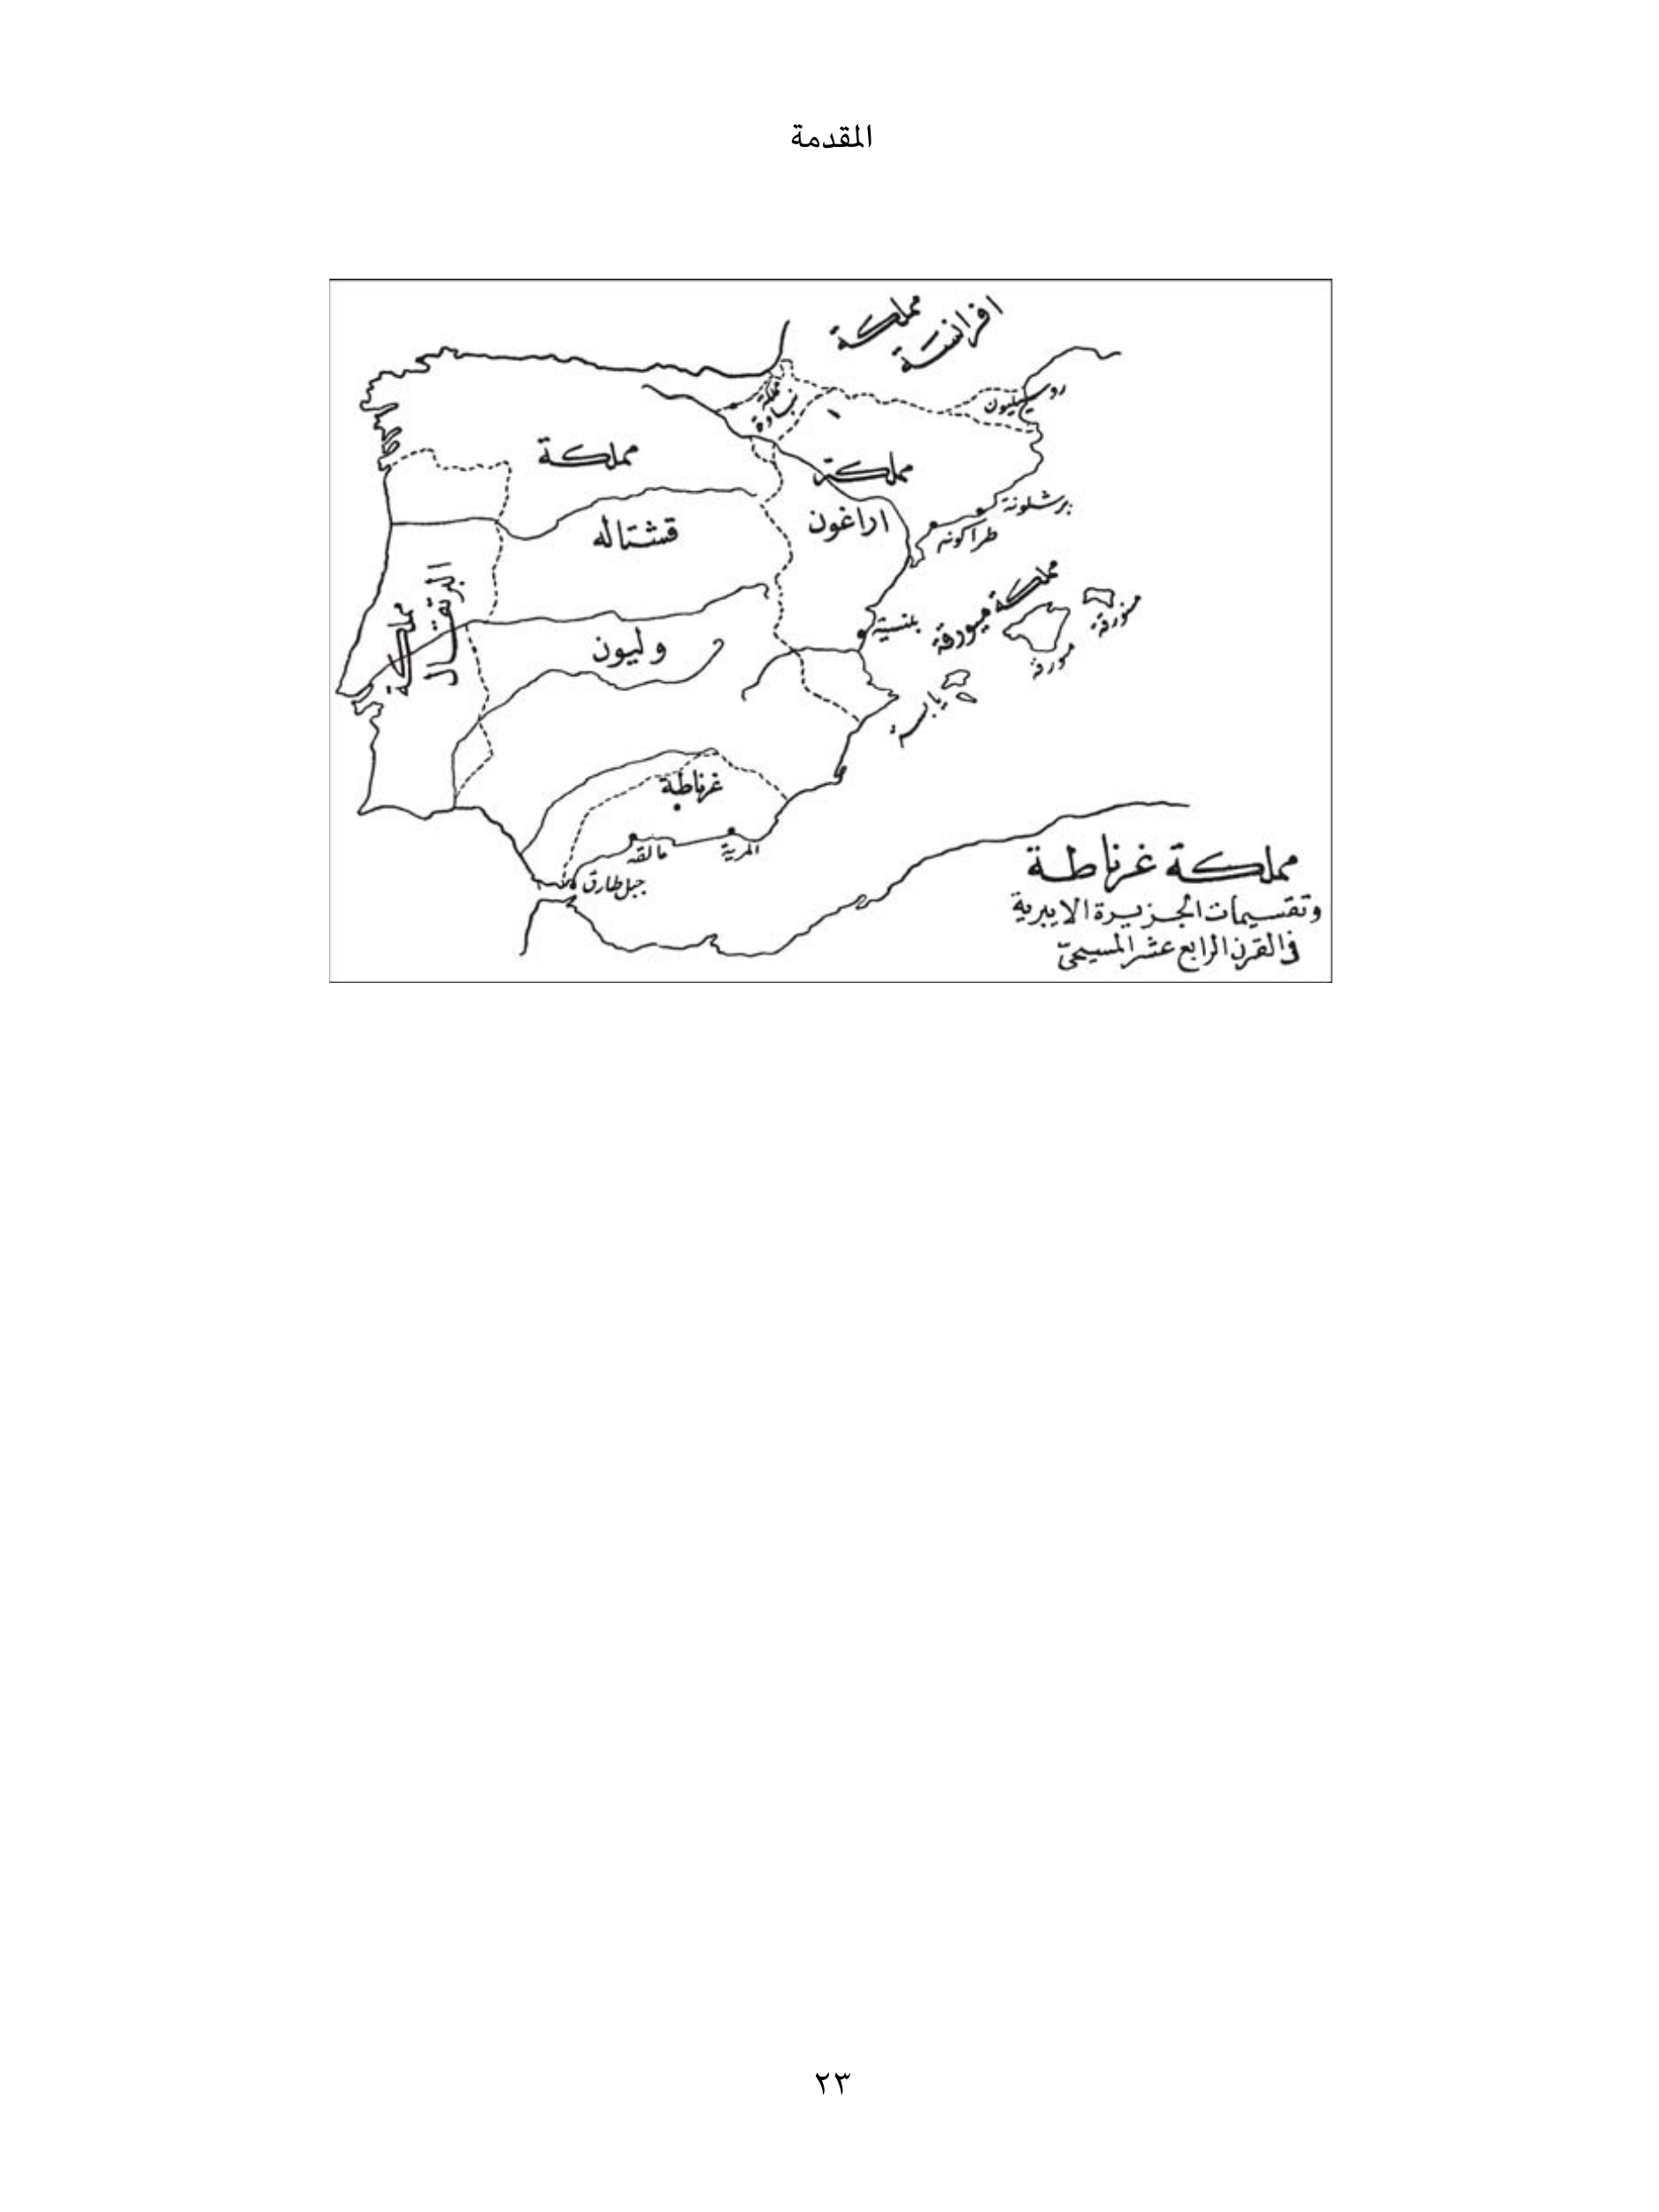 المقدمة
مملكة
افرانسية
روسيليون
مملكة
مملكة
قشتاله
اراغون
برشلونة
طراكونه
مملكة
وليون
بلنسية
مملكة ميورقة
منورقة
يابسة
غرناطة
المرية
مالقه
جبل طارق
مملكة غرناطة
وتقسيمات الجزيرة الايبرية
في القرن الرابع عشر المسيحيّ
٢٣